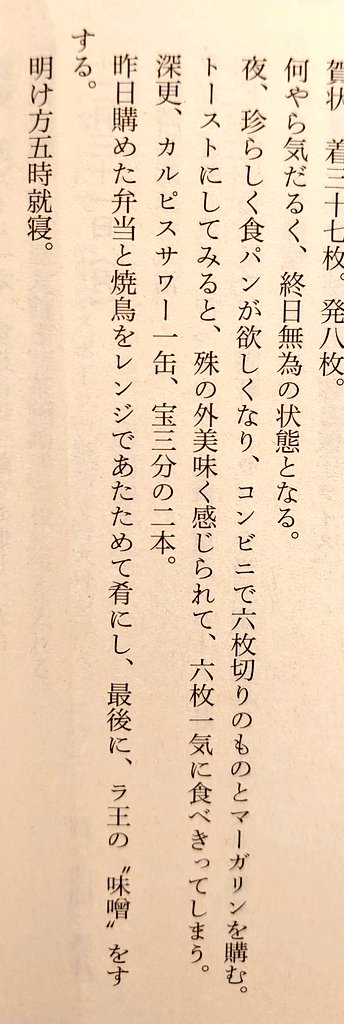 賀状 着三十七枚。発八枚。
何やら気だるく、終日無為の状態となる。
夜、珍らしく食パンが欲しくなり、コンビニで六枚切りのものとマーガリンを購む。
トーストにしてみると、殊の外美味く感じられて、六枚一気に食べきってしまう。
深更、カルピスサワー一缶、宝三分の二本。
昨日購めた弁当と焼鳥をレンジであたためて肴にし、最後に、ラ王の〝味噌〟をす
する。
明け方五時就寝。